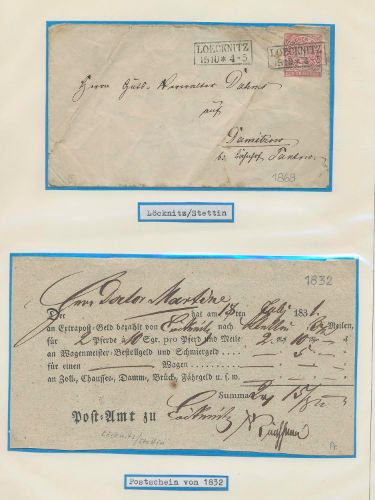 LOECKNITZ
15 10 * 4-5
LOECKNITZ
15 10 * 4-5
Herrn Guts-Verwalter Dahms
auf
Damitzow
1868
Löcknitz/Stettin
1832
Herr Doctor Martine
Der hat am Juli 183
an Extrapost-Geld bezahlt von Löcknitz nach Meilen,
für 2 Pferde à 10 Sgr. pro Pferd und Meile 2 10
an Wagenmeister-Bestellgeld und Schmiergeld 5
für einen Wagen
an Zoll, Chaussee-, Damm-, Brück-, Fährgeld u. s. w.
Summa 2 15
Post-Amt zu Löcknitz
Löcknitz/Stettin
Postschein von 1832